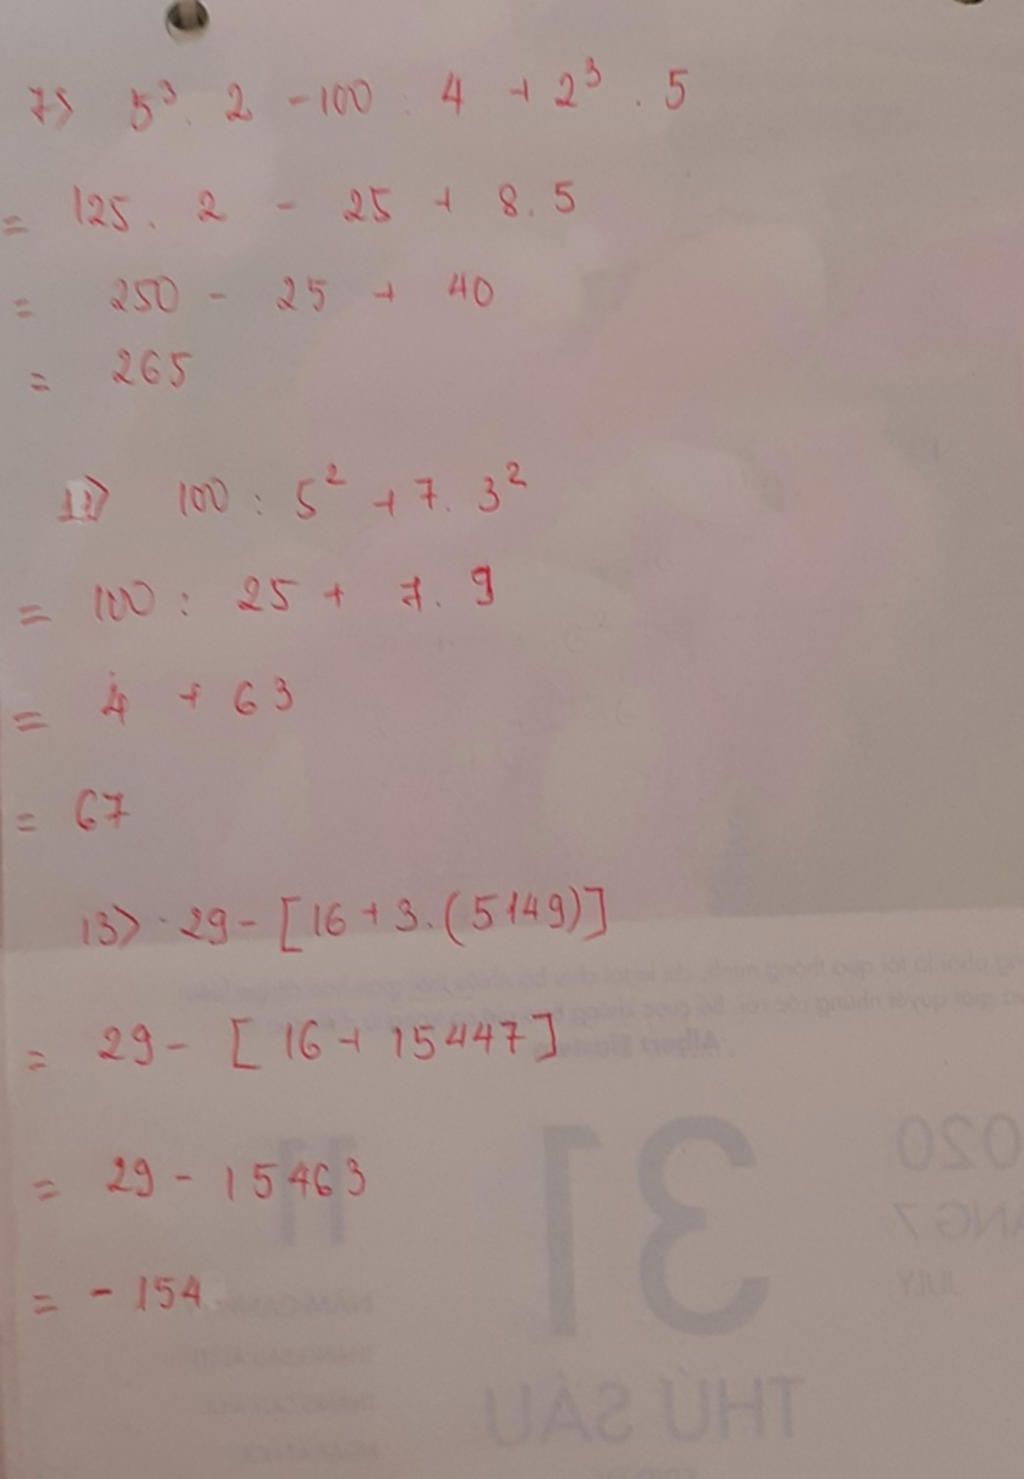 7> 5³. 2 - 100 : 4 + 2³ . 5
= 125. 2 - 25 + 8. 5
= 250 - 25 + 40
= 265
11> 100 : 5² + 7. 3²
= 100 : 25 + 7. 9
= 4 + 63
= 67
13> 29 - [16 + 3. (5149)]
= 29 - [16 + 15447]
= 29 - 15463
= - 154
Albert
31
020
NG 7
JULY
11
THỨ SÁU